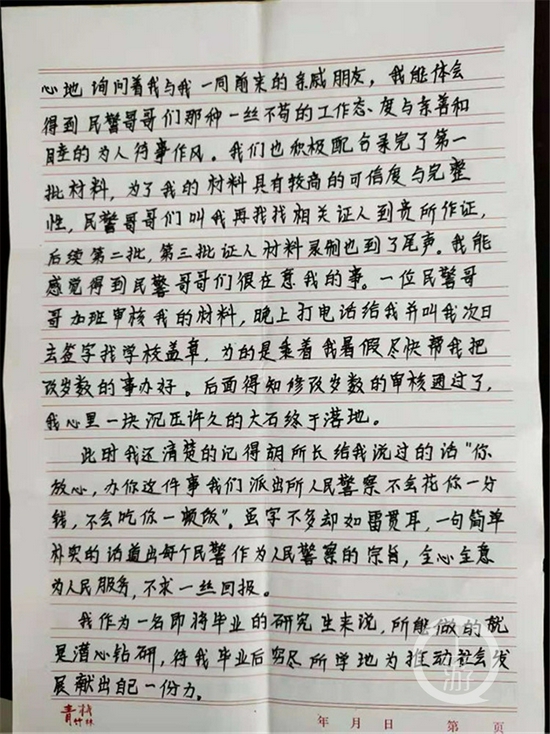 心地询问着我与我一同前来的亲戚朋友，我能体会
得到民警哥哥们那种一丝不苟的工作态度与亲善和
睦的为人待事作风。我们也积极配合录完了第一
批材料，为了我的材料具有较高的可信度与完整
性，民警哥哥们叫我再我找相关证人到贵所作证，
后续第二批，第三批证人材料录制也到了尾声。我能
感觉得到民警哥哥们很在意我的事。一位民警哥
哥加班审核我的材料，晚上打电话给我并叫我次日
去签字找学校盖章，为的是乘着我暑假尽快帮我把
改岁数的事办好。后面得知修改岁数的审核通过了，
我心里一块沉压许久的大石终于落地。
此时我还清楚的记得胡所长给我说过的话"你
放心，办你这件事我们派出所人民警察不会花你一分
钱，不会吃你一顿饭"。虽字不多却如雷贯耳，一句简单
朴实的话道出每个民警作为人民警察的宗旨，全心全意
为人民服务，不求一丝回报。
我作为一名即将毕业的研究生来说，所能做的就
是潜心钻研，待我毕业后穷尽所学地为推动社会发
展献出自己一份力。
年 月 日 第 页
上游